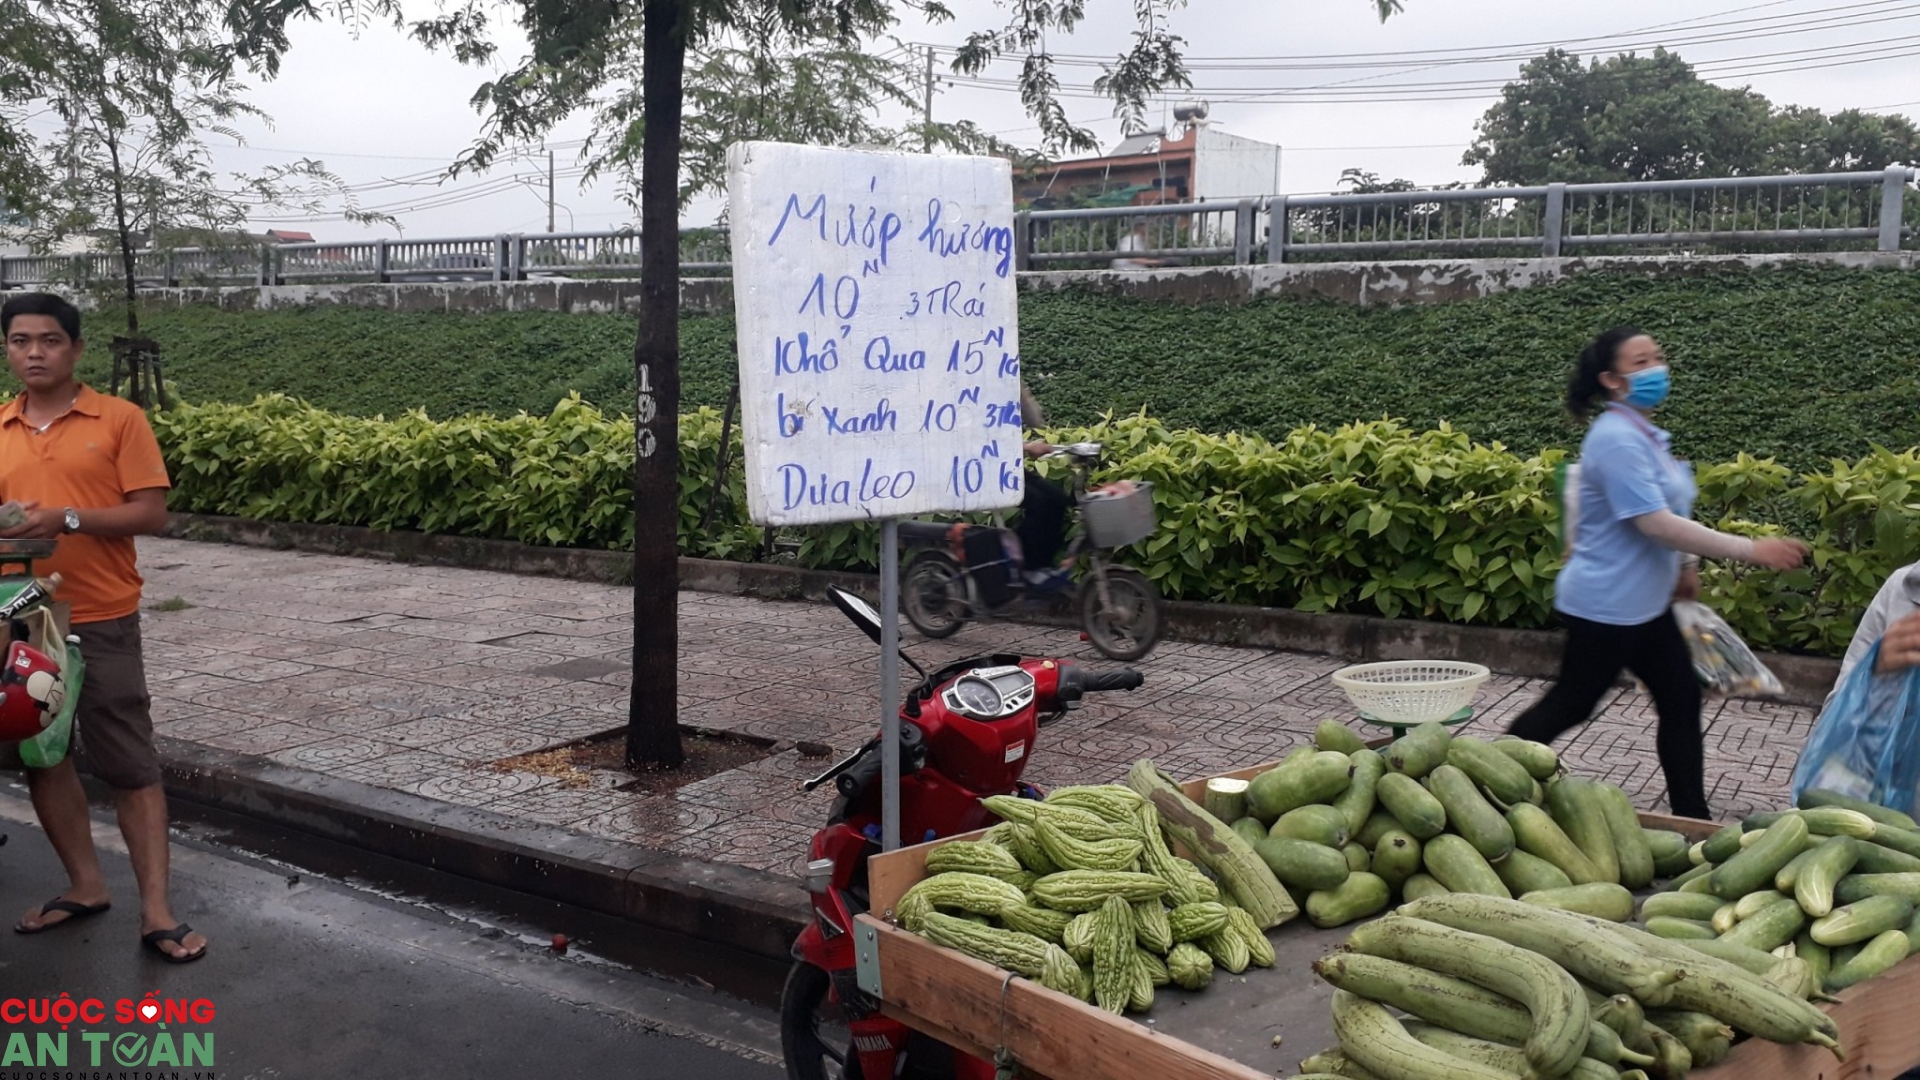 Mướp hương
10ᴺ 3TRái
Khổ Qua 15ᴺ kí
bí xanh 10ᴺ 3TRái
Dưa leo 10ᴺ kí
190
YAMAHA
CUỘC SỐNG
AN TOÀN
CUOCSONGANTOAN.VN